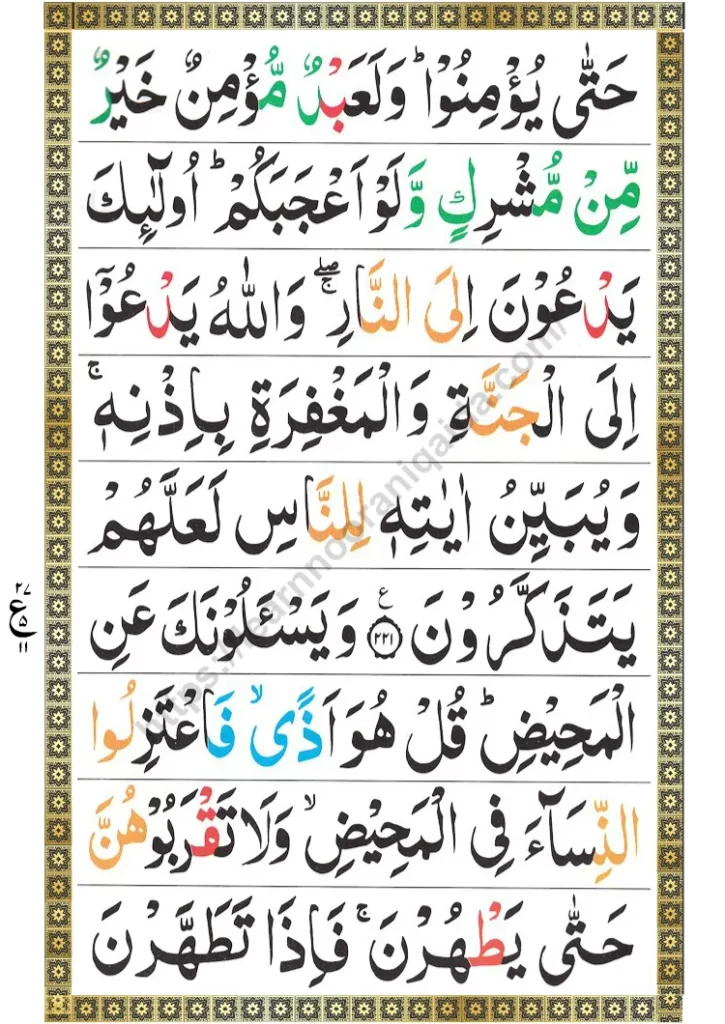 حَتّٰى يُؤْمِنُوْا ؕ وَلَعَبْدٌ مُّؤْمِنٌ خَيْرٌ
مِّنْ مُّشْرِكٍ وَّلَوْ اَعْجَبَكُمْ ؕ اُولٰٓئِكَ
يَدْعُوْنَ اِلَى النَّارِ ۖۚ وَاللّٰهُ يَدْعُوْٓا
اِلَى الْجَنَّةِ وَالْمَغْفِرَةِ بِاِذْنِهٖ ۚ
وَيُبَيِّنُ اٰيٰتِهٖ لِلنَّاسِ لَعَلَّهُمْ
يَتَذَكَّرُوْنَ ﴿۲۲۱﴾ ع وَيَسْـَٔلُوْنَكَ عَنِ
الْمَحِيْضِ ؕ قُلْ هُوَ اَذًى ۙ فَاعْتَزِلُوا
النِّسَآءَ فِى الْمَحِيْضِ ۙ وَلَا تَقْرَبُوْهُنَّ
حَتّٰى يَطْهُرْنَ ۚ فَاِذَا تَطَهَّرْنَ
۲۷
ع
۵
۱۱
https://learnnooraniqaida.com/